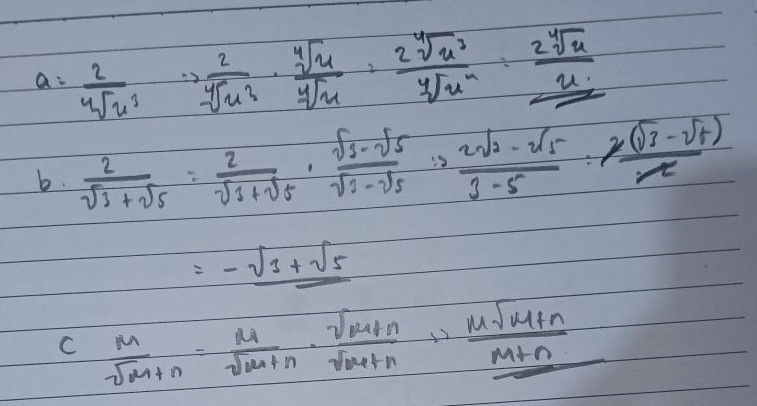 a = 2/∜u³ => 2/∜u³ · ∜u/∜u = 2∜u³/∜u⁴ = 2∜u/u
b. 2/(√3+√5) = 2/(√3+√5) · (√3-√5)/(√3-√5) => (2√3-√5)/(3-5) = 2(√3-√5)/-2
= -√3+√5
c m/√m+n = m/√m+n · √m+n/√m+n => m√m+n/m+n